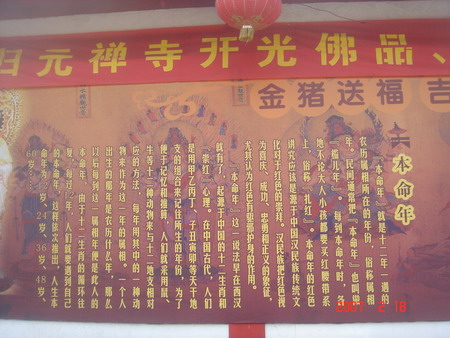 归元禅寺开光佛品、
金猪送福 吉
本命年
“本命年”就是十二年一遇的
农历属相所在的年份,俗称属相
年。民间通常把“本命年”也叫做
“槛儿年”。每到本命年时,各
地不论大人小孩都要买红腰带系
上,俗称“扎红”。本命年的红色
讲究应该是源于中国汉民族传统文
化对于红色的崇拜。汉民族把红色视
为喜庆、成功、忠勇和正义的象征,
尤其认为红色有驱邪护身的作用。
“本命年”这一说法早在西汉
就有了,起源于中国的十二生肖和
“崇红”心理。在中国古代,人们
是用甲乙丙丁、子丑寅卯等天干地
支的组合来记住所生的年份,为了
便于记忆和推算,人们就采用鼠、
牛等十二种动物来与十二地支相对
应的方法,每年用其中的一种动
物来作为这一年的属相。一个人
出生的那年是农历什么年,那么
以后每到这一属相年便是此人的
本命年,由于十二生肖的循环往
复,每过十二年,人们就要遇到自己
的本命年,这样依次推出,人生本
命年为1岁、24岁、36岁、48岁、
60岁……
2007 2 18